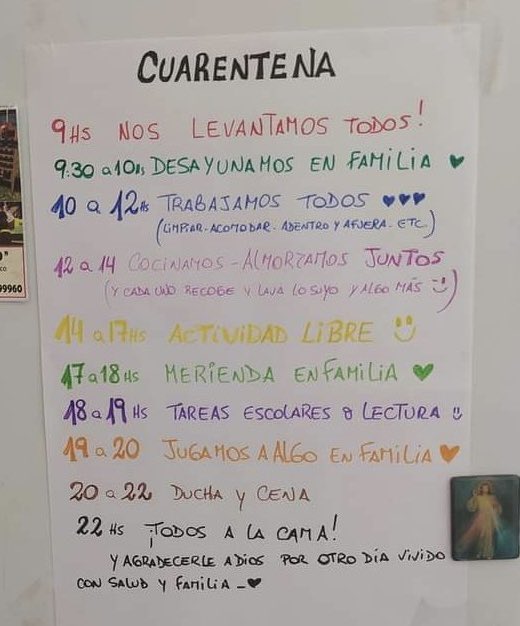 CUARENTENA
9HS NOS LEVANTAMOS TODOS!
9:30 a 10HS DESAYUNAMOS EN FAMILIA ♥
10 a 12HS TRABAJAMOS TODOS ♥♥♥
(LIMPIAR - ACOMODAR - ADENTRO Y AFUERA. ETC)
12 a 14 COCINAMOS - ALMORZAMOS JUNTOS
(Y CADA UNO RECOGE Y LAVA LO SUYO Y ALGO MÁS ☺)
14 a 17HS ACTIVIDAD LIBRE ☺
17 a 18HS MERIENDA EN FAMILIA ♥
18 a 19 HS TAREAS ESCOLARES o LECTURA ☺
19 a 20 JUGAMOS A ALGO EN FAMILIA ♥
20 a 22 DUCHA Y CENA
22 HS ¡TODOS A LA CAMA!
Y AGRADECERLE A DIOS POR OTRO DÍA VIVIDO
CON SALUD Y FAMILIA - ♥
99960